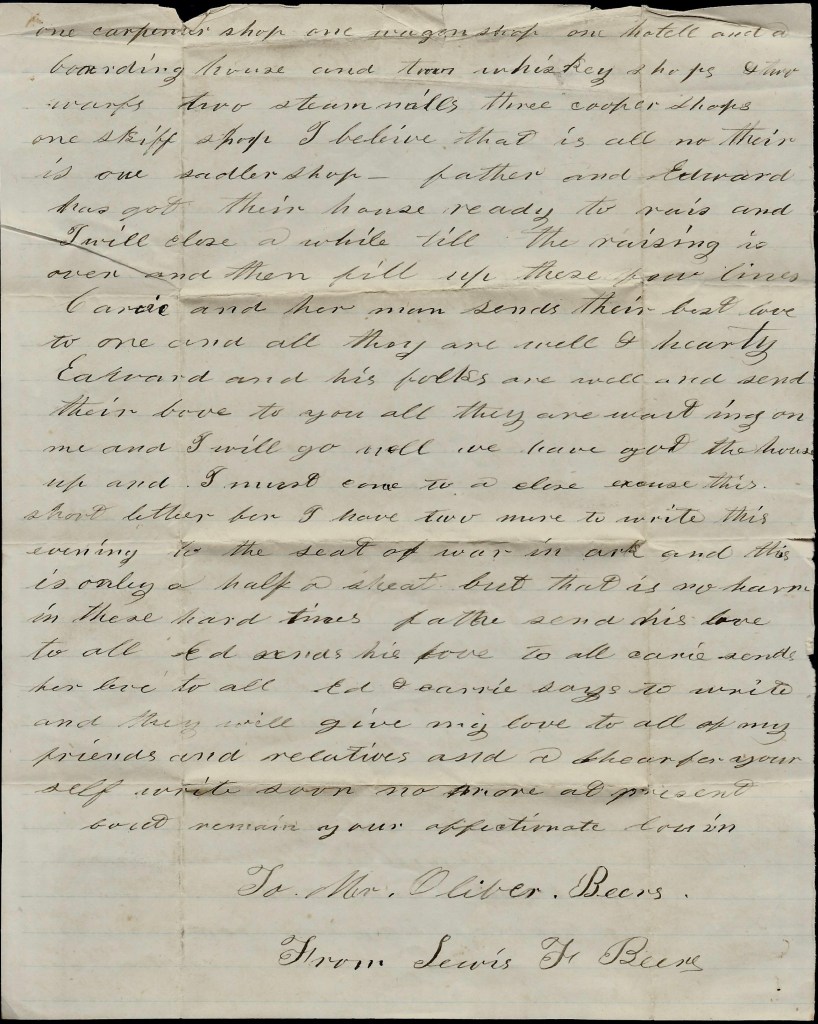 one carpenter shop one wagon shop one hotell and a
boarding house and two whiskey shops & two
warfs two steam mills three cooper shops
one skiff shop I beleive that is all no their
is one sadler shop – father and Edward
has got their house ready to rais and
I will close a while till the raising is
over and then fill up these few lines
Carrie and her man sends their best love
to one and all they are well & hearty
Edward and his folks are well and send
their love to you all they are wait ing on
me and I will go well we have got the house
up and I must come to a close excuse this
short letter for I have two more to write this
evening to the seat of war in ark and this
is only a half a sheat but that is no harm
in these hard times fathe send his love
to all Ed sends his love to all carie sends
her love to all Ed & carrie says to write
and they will give my love to all of my
friends and relatives and a shear for your
self write soon no more at present
but remain your affectionate cousin
To. Mr. Oliver. Beers.
From Lewis F Beers